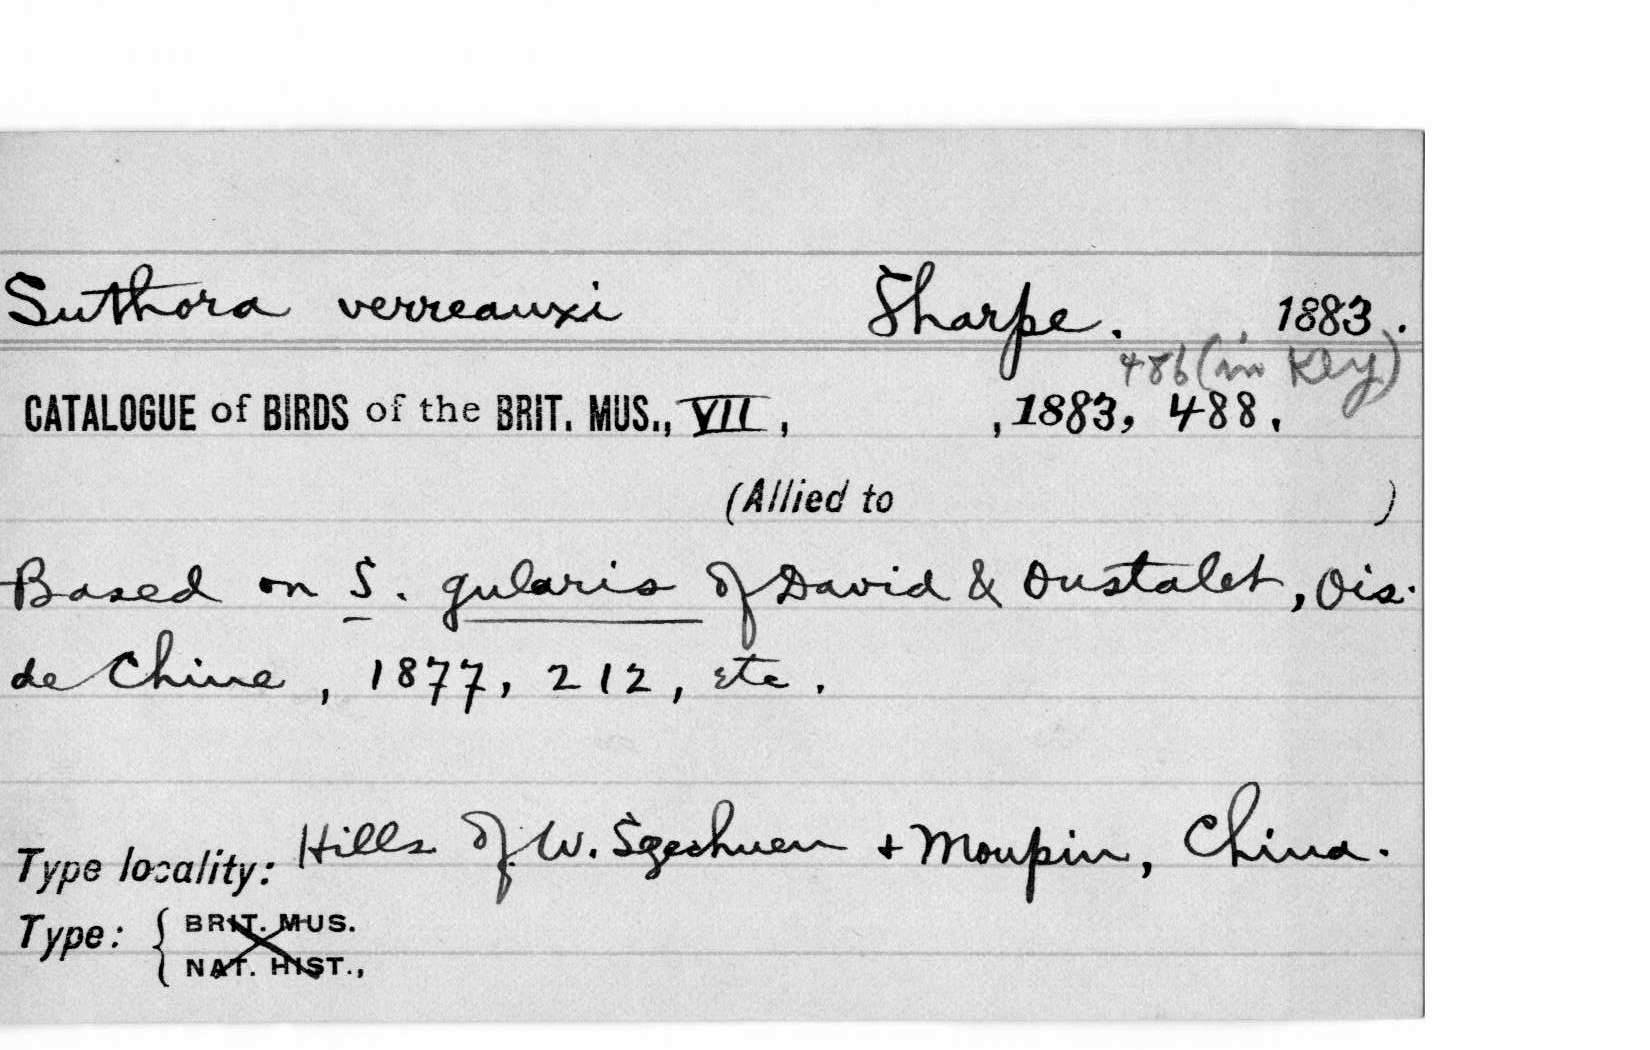 Suthora verreauxi Sharpe. 1883.
486 (in Key)
CATALOGUE of BIRDS of the BRIT. MUS., VII, , 1883, 488.
(Allied to )
Based on S. gularis of David & Oustalet, Ois.
de Chine, 1877, 212, etc.
Type locality: Hills of W. Szeshuen + Moupin, China.
Type: { BRIT. MUS.
NAT. HIST.,